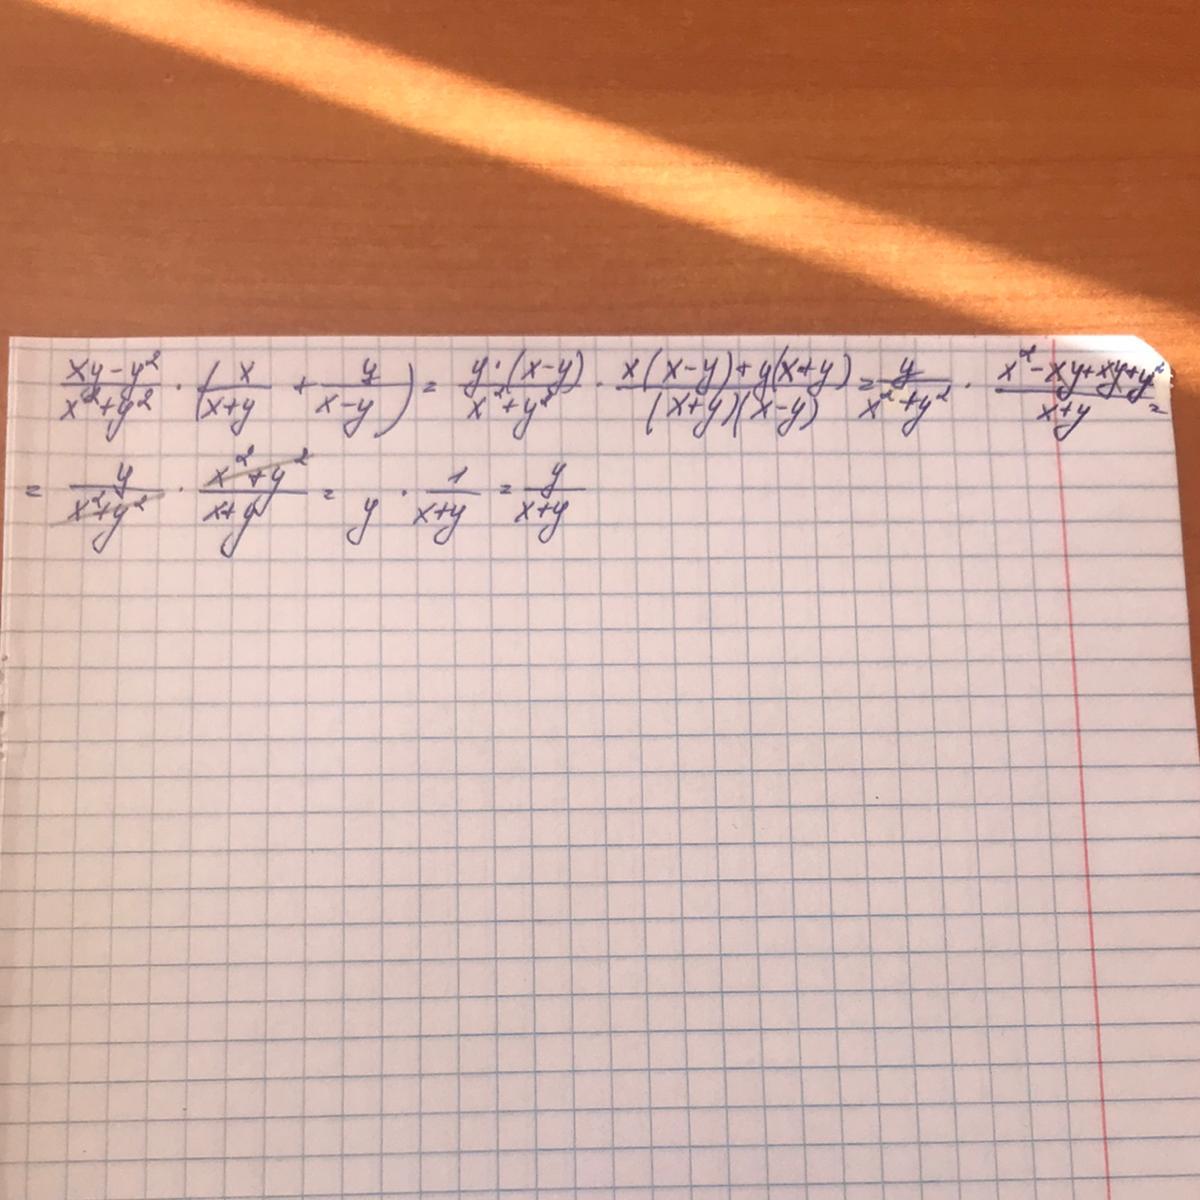 (xy-y²)/(x²+y²) · (x/(x+y) + y/(x-y)) = (y·(x-y))/(x²+y²) · (x(x-y)+y(x+y))/((x+y)(x-y)) = y/(x²+y²) · (x²-xy+xy+y²)/(x+y) =
= y/(x²+y²) · (x²+y²)/(x+y) = y · 1/(x+y) = y/(x+y)